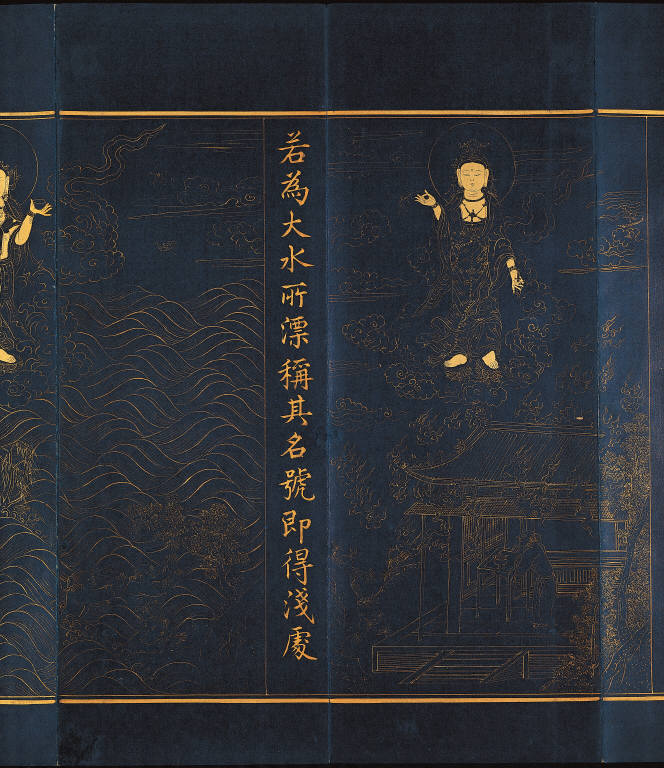 若為大水所漂稱其名號即得淺處